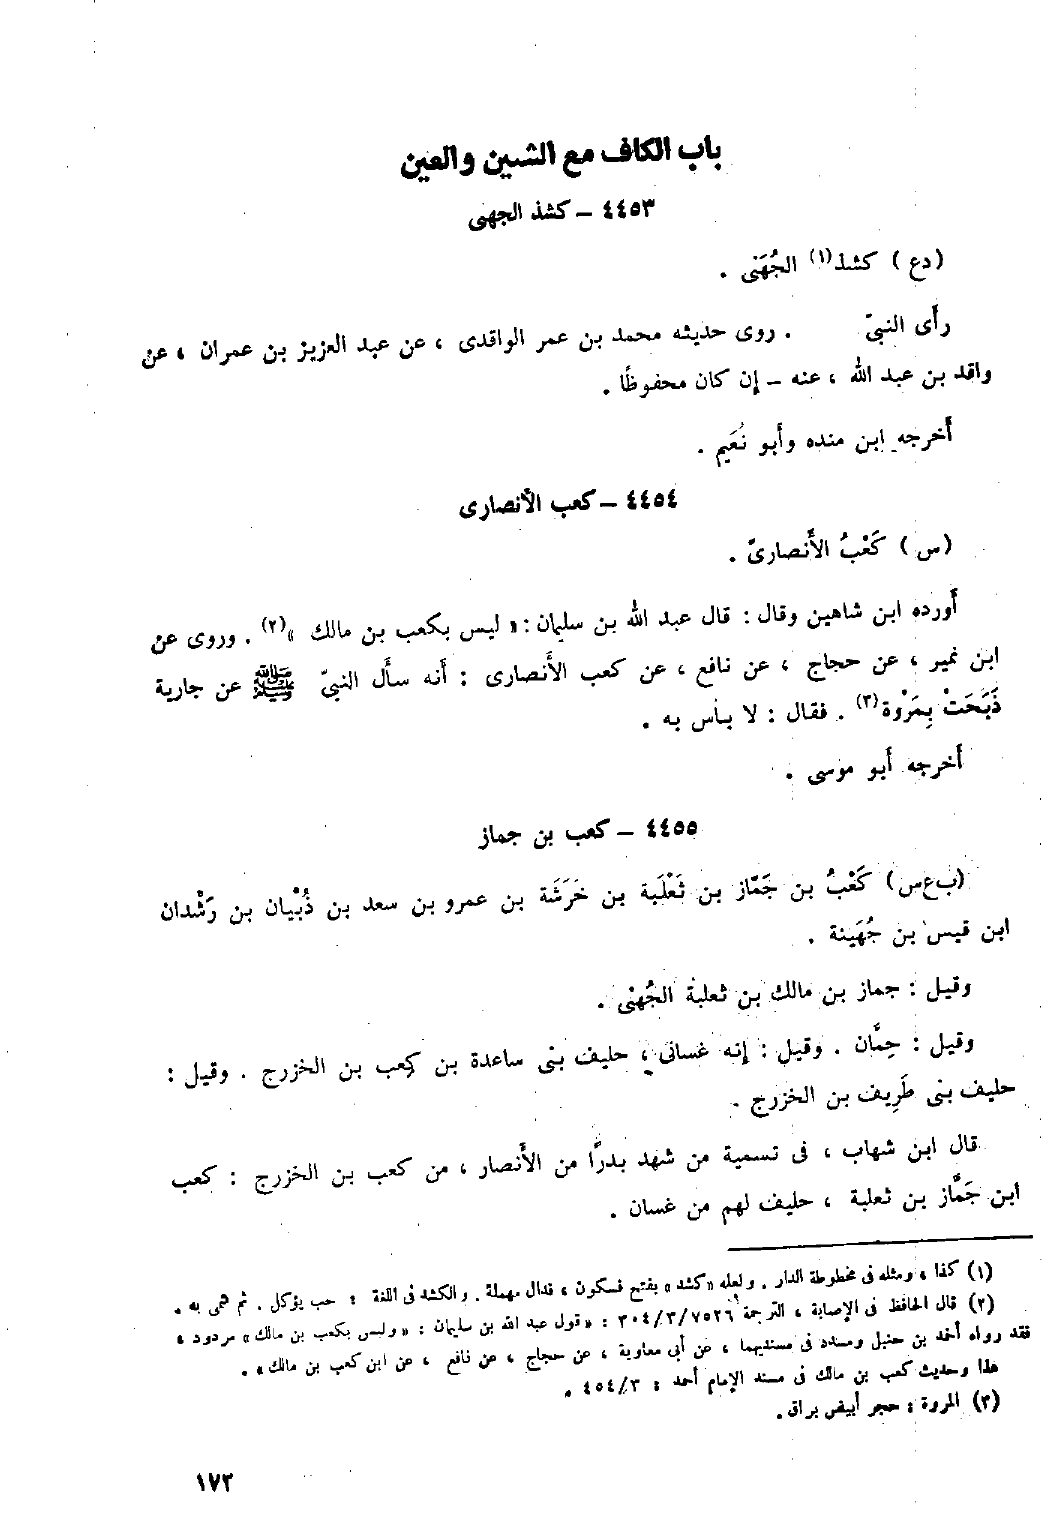 باب الكاف مع الشين والعين
٤٤٥٣ – كشذ الجهنى
(دع) كشذ(١) الجُهَنى .
رأى النبىّ . روى حديثه محمد بن عمر الواقدى ، عن عبد العزيز بن عمران ، عن
واقد بن عبد الله ، عنه – إن كان محفوظًا .
أخرجه ابن منده وأبو نُعَيم .
٤٤٥٤ – كعب الأنصارى
(س) كَعْبُ الأَنصارىّ .
أورده ابن شاهين وقال : قال عبد الله بن سليمان : « ليس بكعب بن مالك »(٢) . وروى عن
ابن نمير ، عن حجاج ، عن نافع ، عن كعب الأنصارى : أنه سأل النبىّ ﷺ عن جارية
ذَبَحَتْ بِمَرْوة(٣) . فقال : لا بأس به .
أخرجه أبو موسى .
٤٤٥٥ – كعب بن جماز
(ب ع س) كَعْبُ بن جَمّاز بن ثَعْلَبة بن خَرَشَة بن عمرو بن سعد بن ذُبْيان بن رَشْدان
ابن قيس بن جُهَينة .
وقيل : جماز بن مالك بن ثعلبة الجُهْنى .
وقيل : حِمَّان . وقيل : إنه غسانى ، حليف بنى ساعدة بن كعب بن الخزرج . وقيل :
حليف بنى طَرِيف بن الخزرج .
قال ابن شهاب ، فى تسمية من شهد بدرًا من الأنصار ، من كعب بن الخزرج : كعب
ابن جَمَّاز بن ثعلبة ، حليف لهم من غسان .
(١) كفا ، ومثله فى مخطوطة الدار . ولعله « كشد » بفتح فسكون ، فدال مهملة . والكشد فى اللغة : حب يؤكل . ثم سمى به .
(٢) قال الحافظ فى الإصابة ، الترجمة ٧٥٢٦/٣/٣٠٤ : « قول عبد الله بن سليمان : « وليس بكعب بن مالك » مردود ،
فقد رواه أحمد بن حنبل ومسدد فى مسنديهما ، عن أبى معاوية ، عن حجاج ، عن نافع ، عن ابن كعب بن مالك » .
هذا وحديث كعب بن مالك فى مسند الإمام أحمد : ٣/٤٥٤ .
(٣) المروة : حجر أبيض براق .
١٧٢